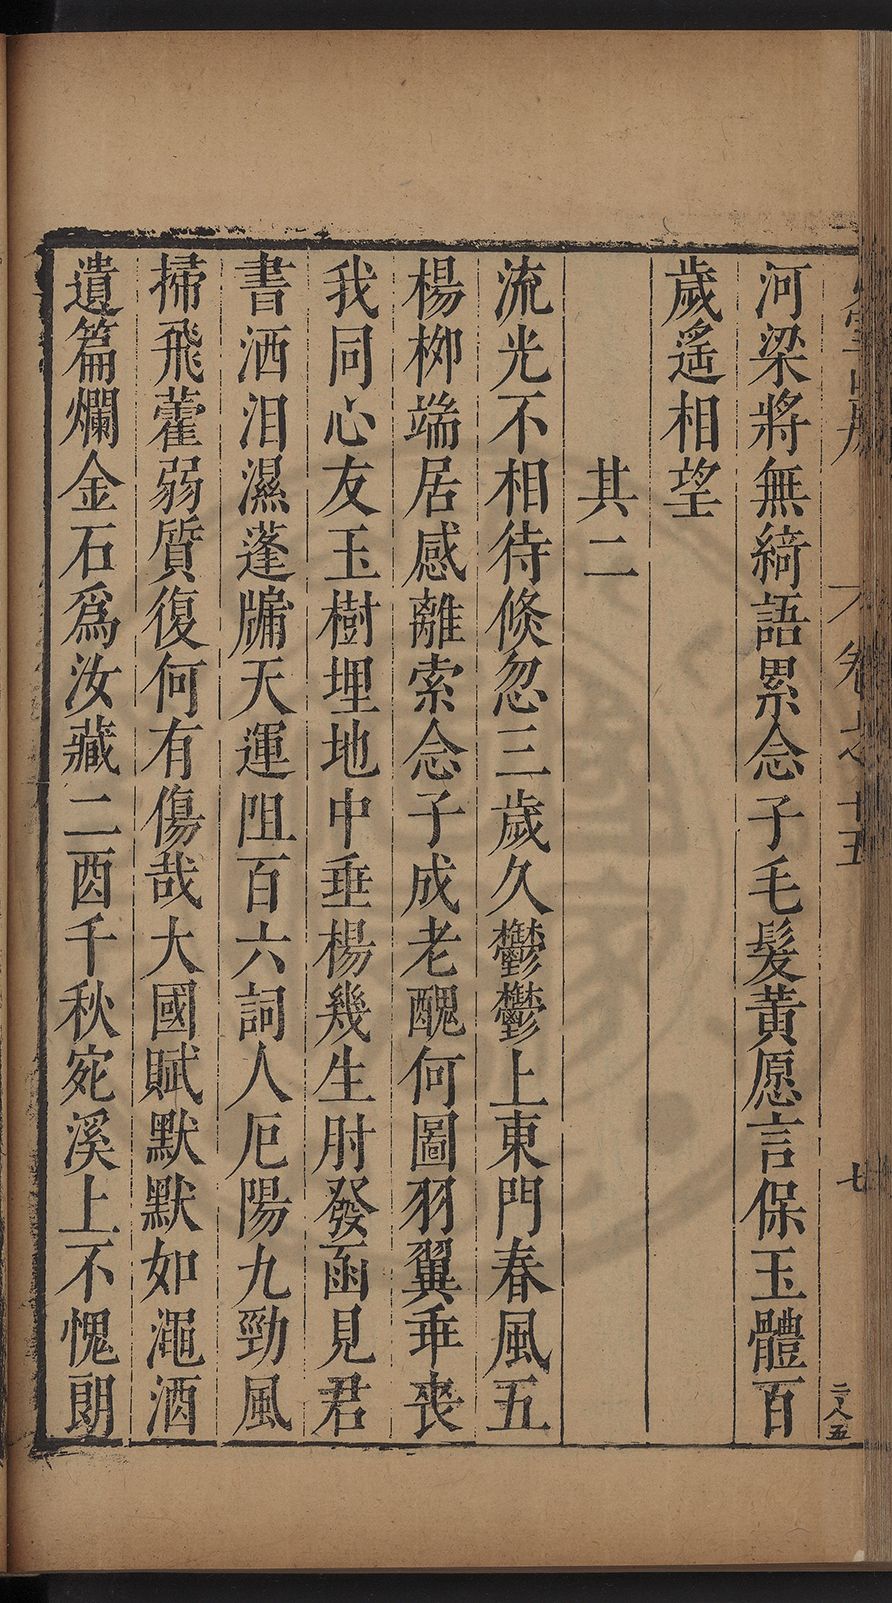 河梁將無綺語累念子毛髮黃愿言保玉體百
歲遥相望
其二
流光不相待倐忽三歲久鬱鬱上東門春風五
楊栁端居感離索念子成老醜何圖羽翼乖喪
我同心友玉樹埋地中垂楊幾生肘發函見君
書洒泪濕蓬牖天運阻百六詞人厄陽九勁風
掃飛藿弱質復何有傷哉大國賦默默如澠酒
遺篇爛金石爲汝藏二酉千秋宛溪上不愧朗
卷之十五
七
二八五